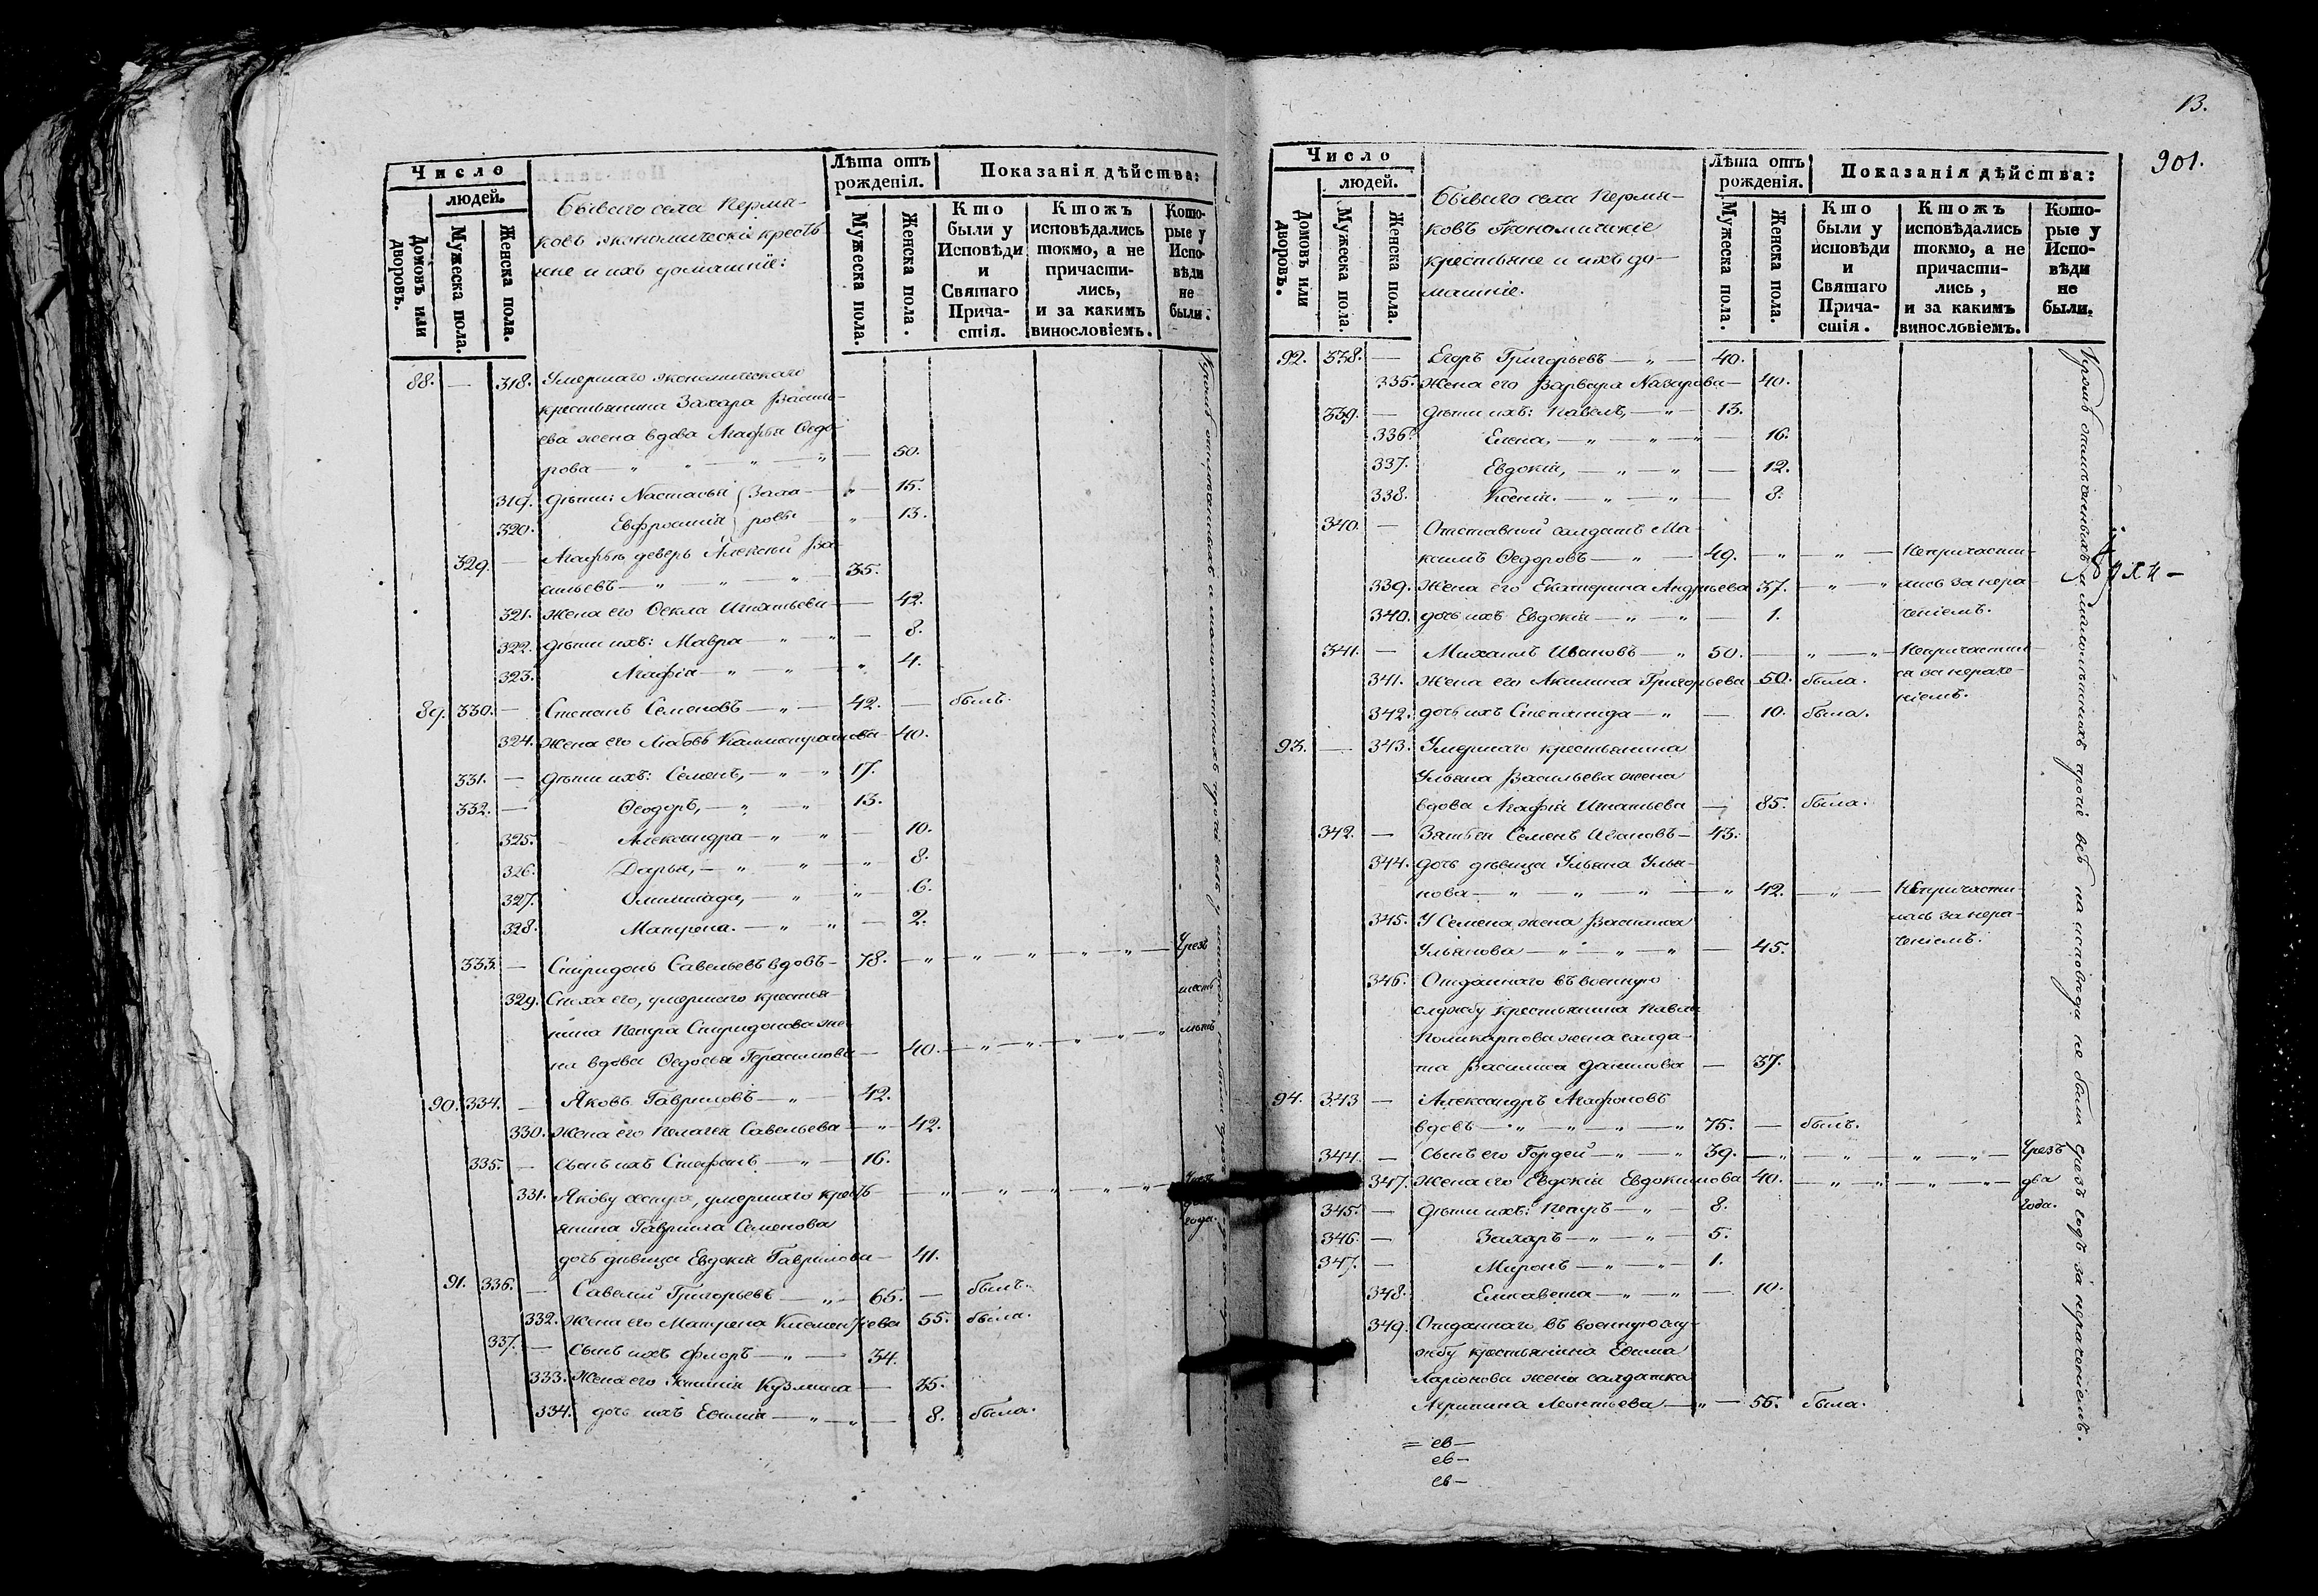 Число
людей.
Домовъ или дворовъ.
Мужеска пола.
Женска пола.
Бывшаго села Пермя-
ковъ экономическіе кресть
яне и ихъ домашніе:
Лѣта отъ рожденія.
Мужеска пола.
Женска пола.
Показанія дѣйства:
Кто были у Исповѣди и Святаго Прича-стія.
Ктожъ исповѣдались токмо, а не причасти-лись, и за какимъ винословіемъ.
Кото-рые у Испо-вѣди не были.
88. — 318. Умершаго экономическаго
крестьянина Захара Васил-
ева жена вдова Агафья Ѳедо
рова — 50.
319. Дѣти: Настасья (Заха- 15.
320. Евфросинія ровы 13.
329. — Агафьи деверь Алексѣй Ва
сильевъ — 35.
321. Жена его Ѳекла Игнатьева — 42.
322. Дѣти ихъ: Мавра — 8.
323. Агафія — 4.
89. 330. — Степанъ Семеновъ — 42. — былъ.
324. Жена его Любовь Калистратова 40.
331. — Дѣти ихъ: Семенъ, — 17.
332. — Ѳеодоръ, — 13.
325. Александра — 10.
326. Дарья, — 8.
327. Олимпіада, — 6.
328. Матрена. — 2.
333. — Спиридонъ Савельевъ вдовъ — 78. — Чрезъ
329. Сноха его, умершаго кресть шесть
нина Петра Спиридонова же лѣтъ
на вдова Ѳедосья Герасимова — 40.
90. 334. — Яковъ Гавриловъ — 42.
330. Жена его Пелагея Савельева — 42.
335. — Сынъ ихъ Стефанъ — 16.
331. Якову сестра, умершаго кресть
янина Гаврила Семенова года.
дочь дѣвица Евдокія Гаврилова — 41.
91. 336. — Савелій Григорьевъ — 65. — былъ.
332. Жена его Матрена Клементьева 55. была.
337. — Сынъ ихъ Флоръ — 34.
333. Жена его Устинія Кузмина — 35.
334. дочь ихъ Евфимія — 8. была.
13.
901.
Число
людей.
Домовъ или дворовъ.
Мужеска пола.
Женска пола.
Бывшаго села Пермя-
ковъ экономическіе
крестьяне и ихъ до-
машніе.
Лѣта отъ рожденія.
Мужеска пола.
Женска пола.
Показанія дѣйства:
Кто были у исповѣди и Святаго Прича-стія.
Ктожъ исповѣдались токмо, а не причасти-лись, и за какимъ винословіемъ.
Кото-рые у Испо-вѣди не были.
92. 338. — Егоръ Григорьевъ — 40.
335. Жена его Варвара Назарова — 40.
339. — Дѣти ихъ: Павелъ, — 13.
336. Елена, — 16.
337. Евдокія, — 12.
338. Ксенія. — 8.
340. — Отставной салдатъ Ма
ксимъ Ѳедоровъ — 49. — Непричасти-
339. Жена его Екатерина Андреева 37. — лись за нера
340. дочь ихъ Евдокія — 1. ченіемъ.
341. — Михаилъ Ивановъ — 50. — Непричастил-
341. Жена его Акилина Григорьева 50. была. ся за нераче-
342. дочь ихъ Степанида — 10. была. ніемъ.
93. — 343. Умершаго крестьянина
Ульяна Васильева жена
вдова Агафія Игнатьева — 85. была.
342. — Зять ея Семенъ Ивановъ — 43.
344. дочь дѣвица Ульяна Улья-
нова — 42. — Непричасти-
345. У Семена жена Василиса лась за нера-
Ульянова — 45. ченіемъ.
346. Отданнаго въ военную
службу крестьянина Павла
Поликарпова жена салда-
тка Василиса Данилова — 37.
94. 343 — Александръ Агафоновъ
вдовъ — 75. — былъ.
344. — Сынъ его Гордей — 39. — Чрезъ
347. Жена его Евдокія Евдокимова 40. — два
345. — Дѣти ихъ: Петръ — 8. года.
346. — Захаръ — 5.
347. — Миронъ — 1.
348. Елисавета — 10.
349. Отданнаго въ военную слу-
жбу крестьянина Евфима
Ларіонова жена салдатка
Агрипина Леонтьева — 55. была.
Кромѣ отмѣченныхъ и малолѣтнихъ прочіе всѣ на исповѣди не были чрезъ годъ за нераченіемъ.
= ев —
ев —
ев —